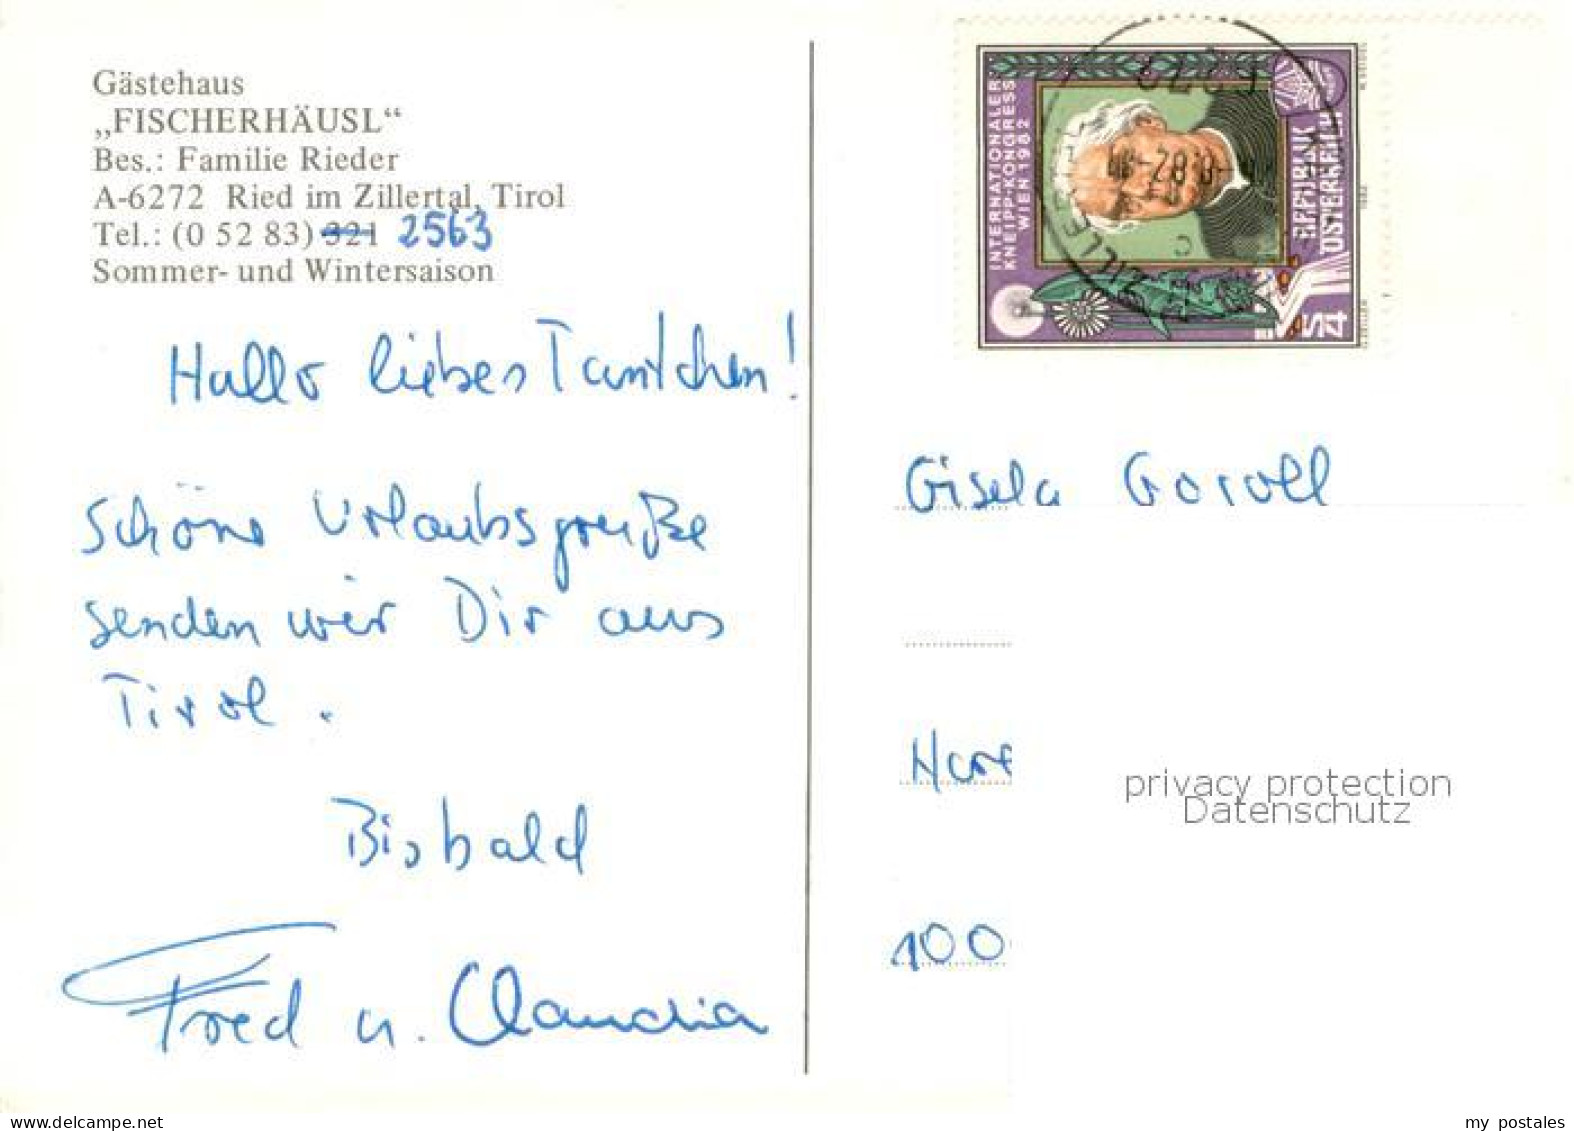 Gästehaus
„FISCHERHÄUSL“
Bes.: Familie Rieder
A-6272 Ried im Zillertal, Tirol
Tel.: (0 52 83) 321 2563
Sommer- und Wintersaison
Hallo liebes Tantchen!
Schöne Urlaubsgrüße
senden wir Dir aus
Tirol.
Bisbald
Fred u. Claudia
INTERNATIONALER
KNEIPP-KONGRESS
WIEN 1982
REPUBLIK
ÖSTERREICH
S 4
Gisela Goroll
100
privacy protection
Datenschutz
my postales
www.delcampe.net